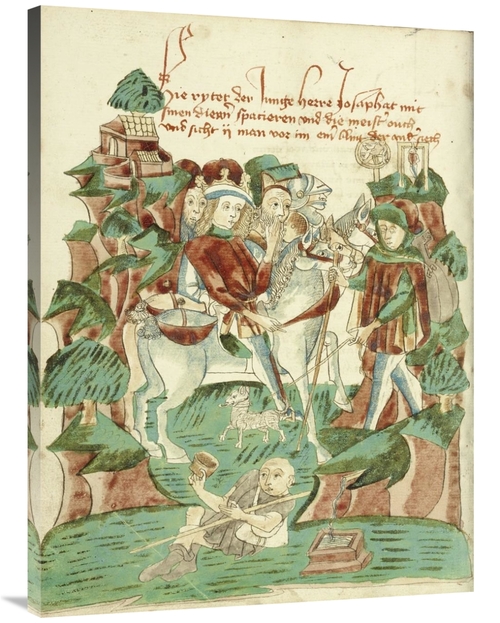 Hie rytet der Junge herre Josaphat mit
sinen diewn spacieren und die meist ouch
und sicht ij man vor im ein blint der and siech